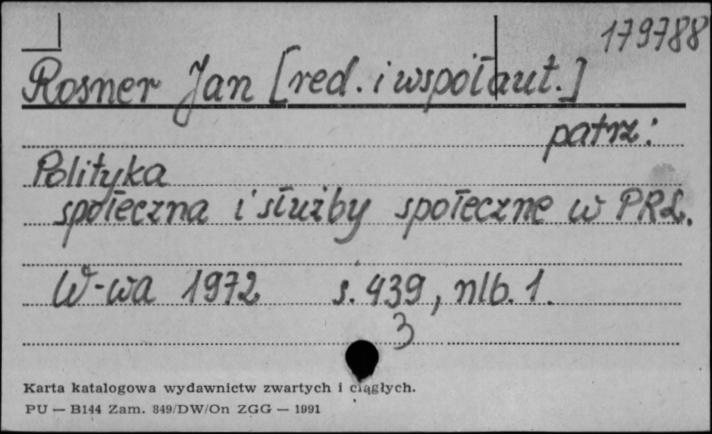 179788
Rosner Jan [red. i wspołaut.]
patrz:
Polityka
społeczna i służby społeczne w PRL.
W-wa 1972 s. 439, nlb. 1.
3
Karta katalogowa wydawnictw zwartych i ciągłych.
PU — B144 Zam. 849/DW/On ZGG — 1991